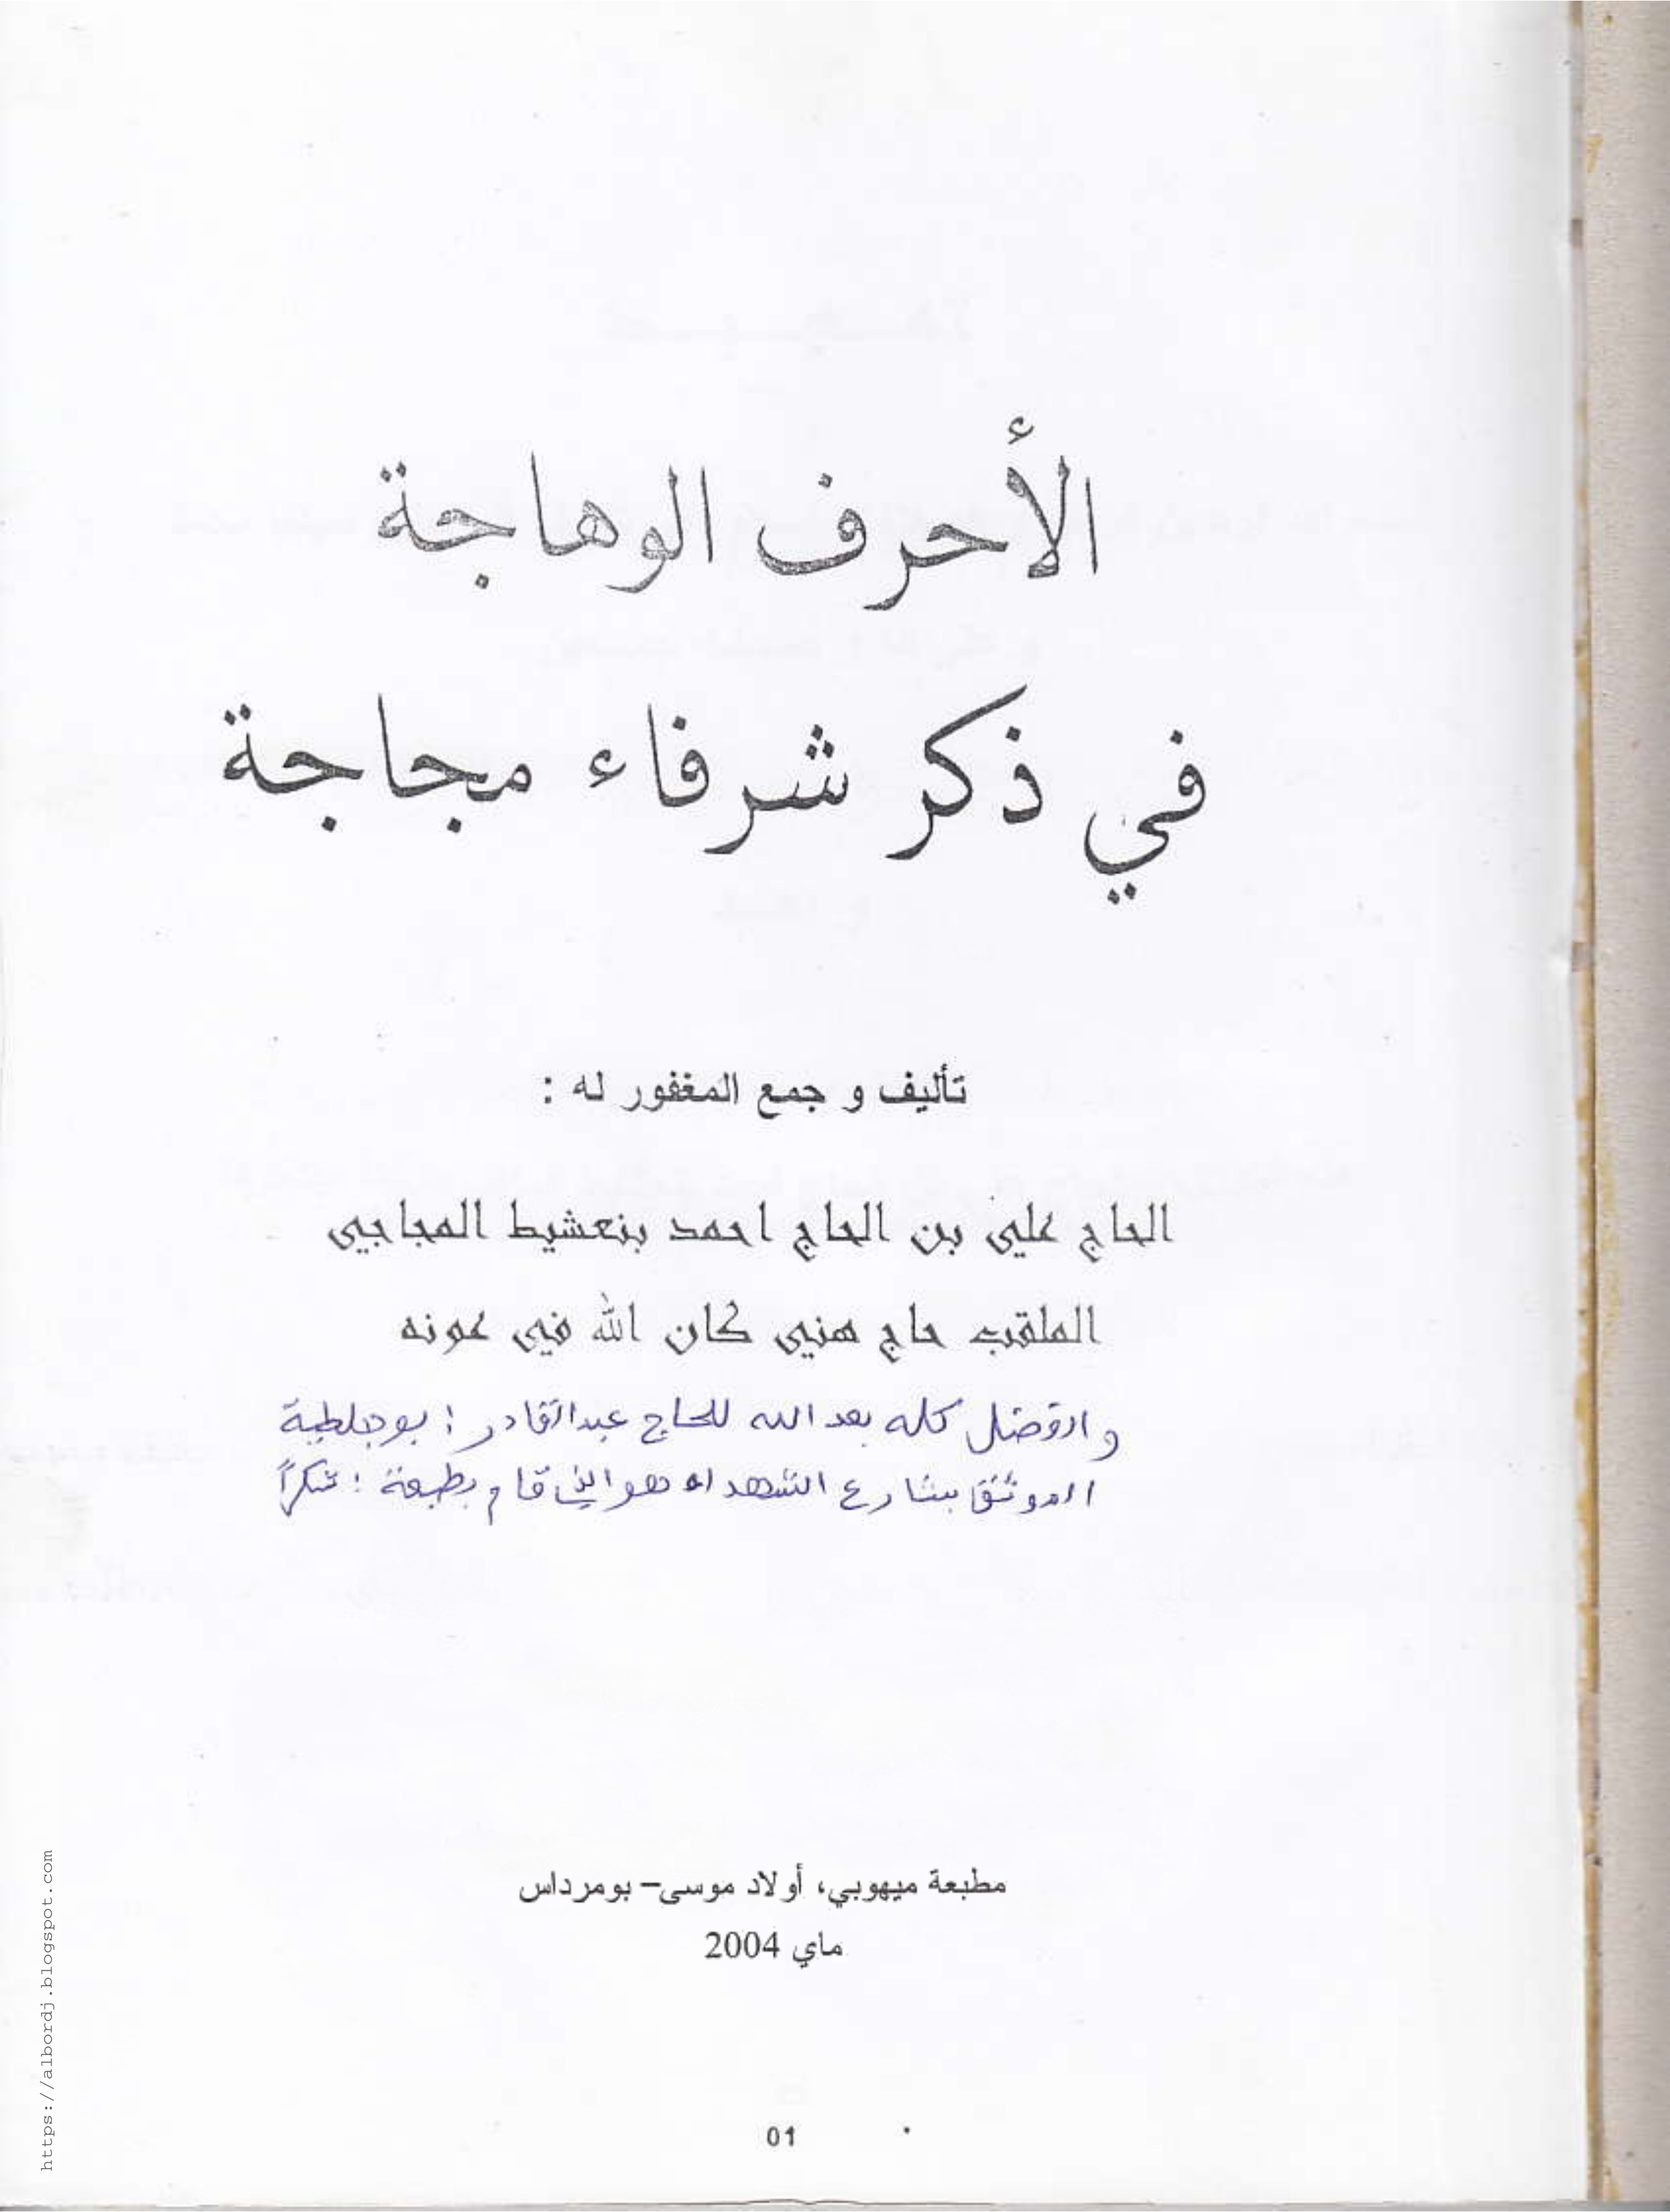 الأحرف الوهاجة
في ذكر شرفاء مجاجة
تأليف و جمع المغفور له :
الحاج علي بن الحاج احمد بنعشيط المجاجي
الملقب حاج هني كان الله في عونه
والفضل كله بعد الله للحاج عبدالقادر : بوجلطية
الموثق بشارع الشهداء هو الذي قام بطبعة : شكراً
مطبعة ميهوبي، أولاد موسى– بومرداس
ماي 2004
01
https://albordj.blogspot.com